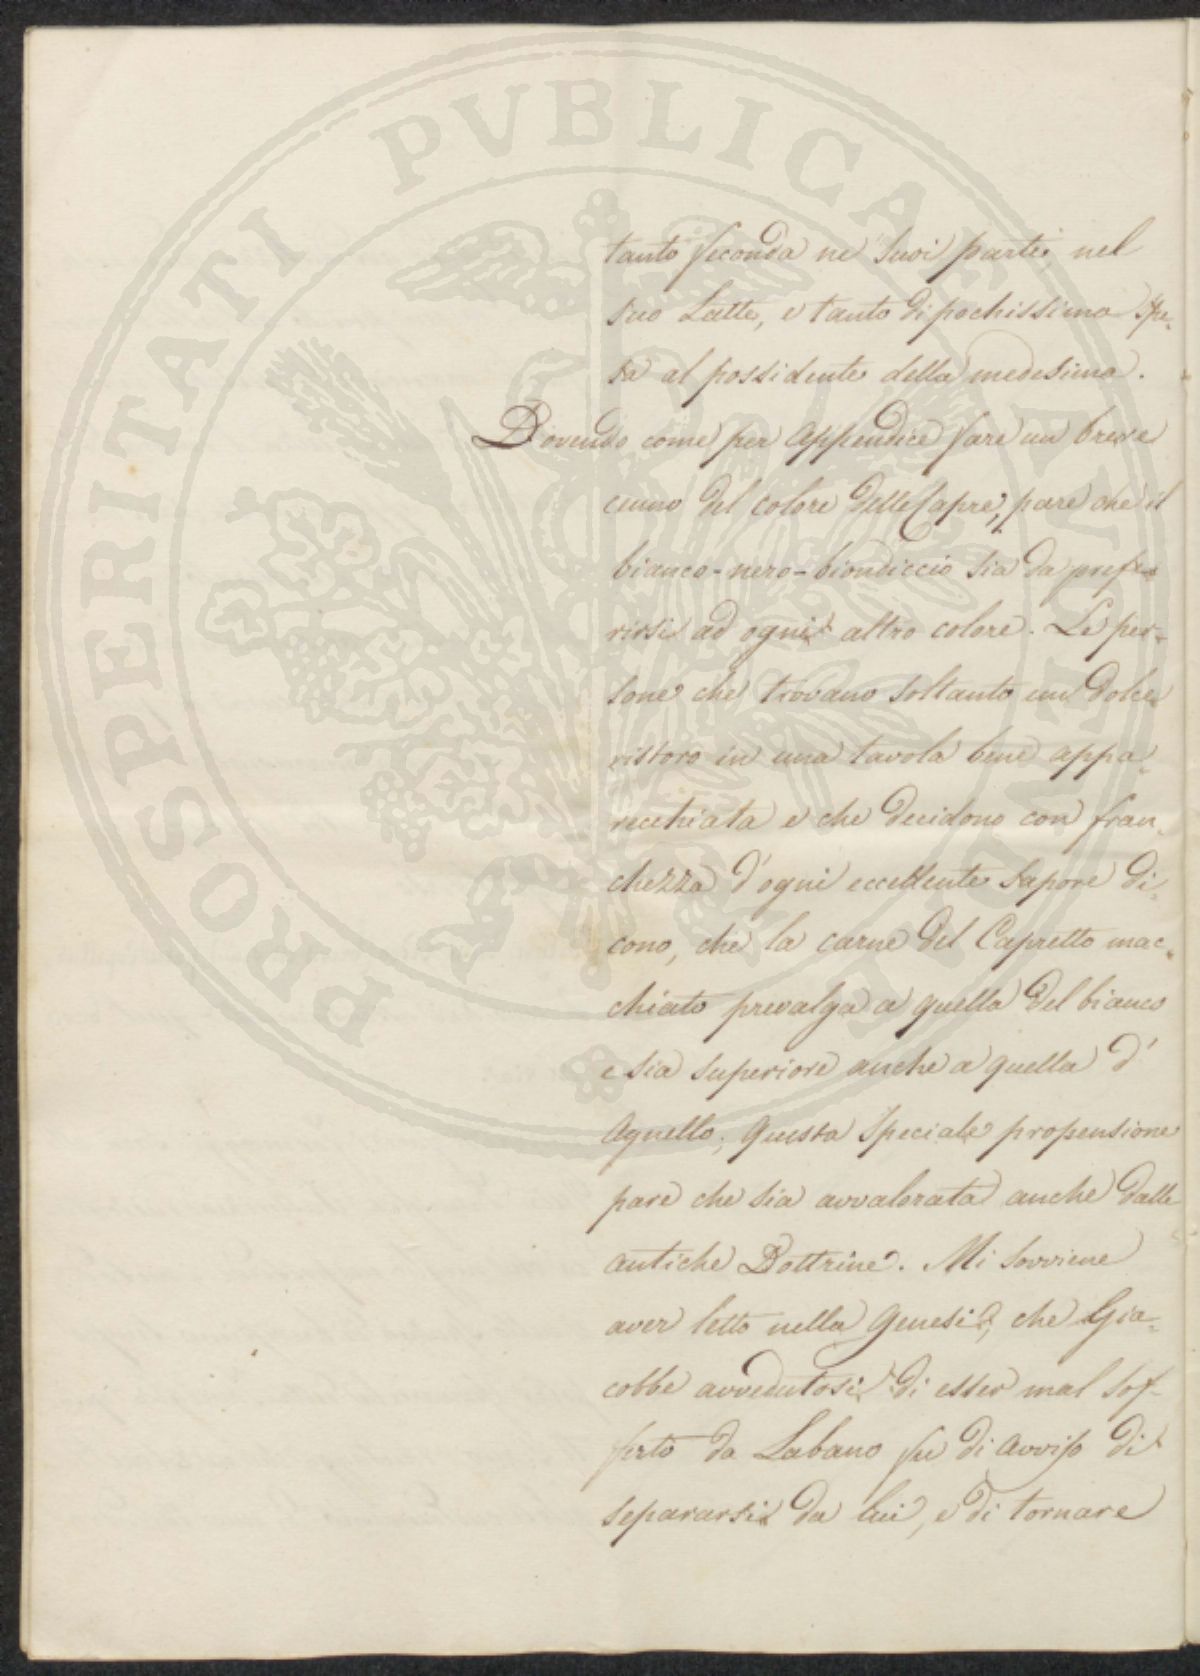 PROSPERITATI PVBLICAE AVGENDAE
tanto feconda ne' suoi parti, nel
suo Latte, e tanto di pochissima spe-
sa al possidente della medesima.
Dovendo come per appendice fare un breve
cenno del colore delle Capre, pare che il
bianco-nero-biondiccio sia da prefe-
rirsi ad ogni altro colore. Le per-
sone che trovano soltanto un dolce
ristoro in una tavola bene appa-
recchiata e che decidono con fran-
chezza d'ogni eccellente sapore di-
cono, che la carne del Capretto mac-
chiato prevalga a quella del bianco
e sia superiore anche a quella d'
Agnello; questa speciale propensione
pare che sia avvalorata anche dalle
antiche Dottrine. Mi sovviene
aver letto nella Genesi, che Gia-
cobbe avvedutosi di esser mal sof-
ferto da Labano fu di avviso di
separarsi da lui, e di tornare